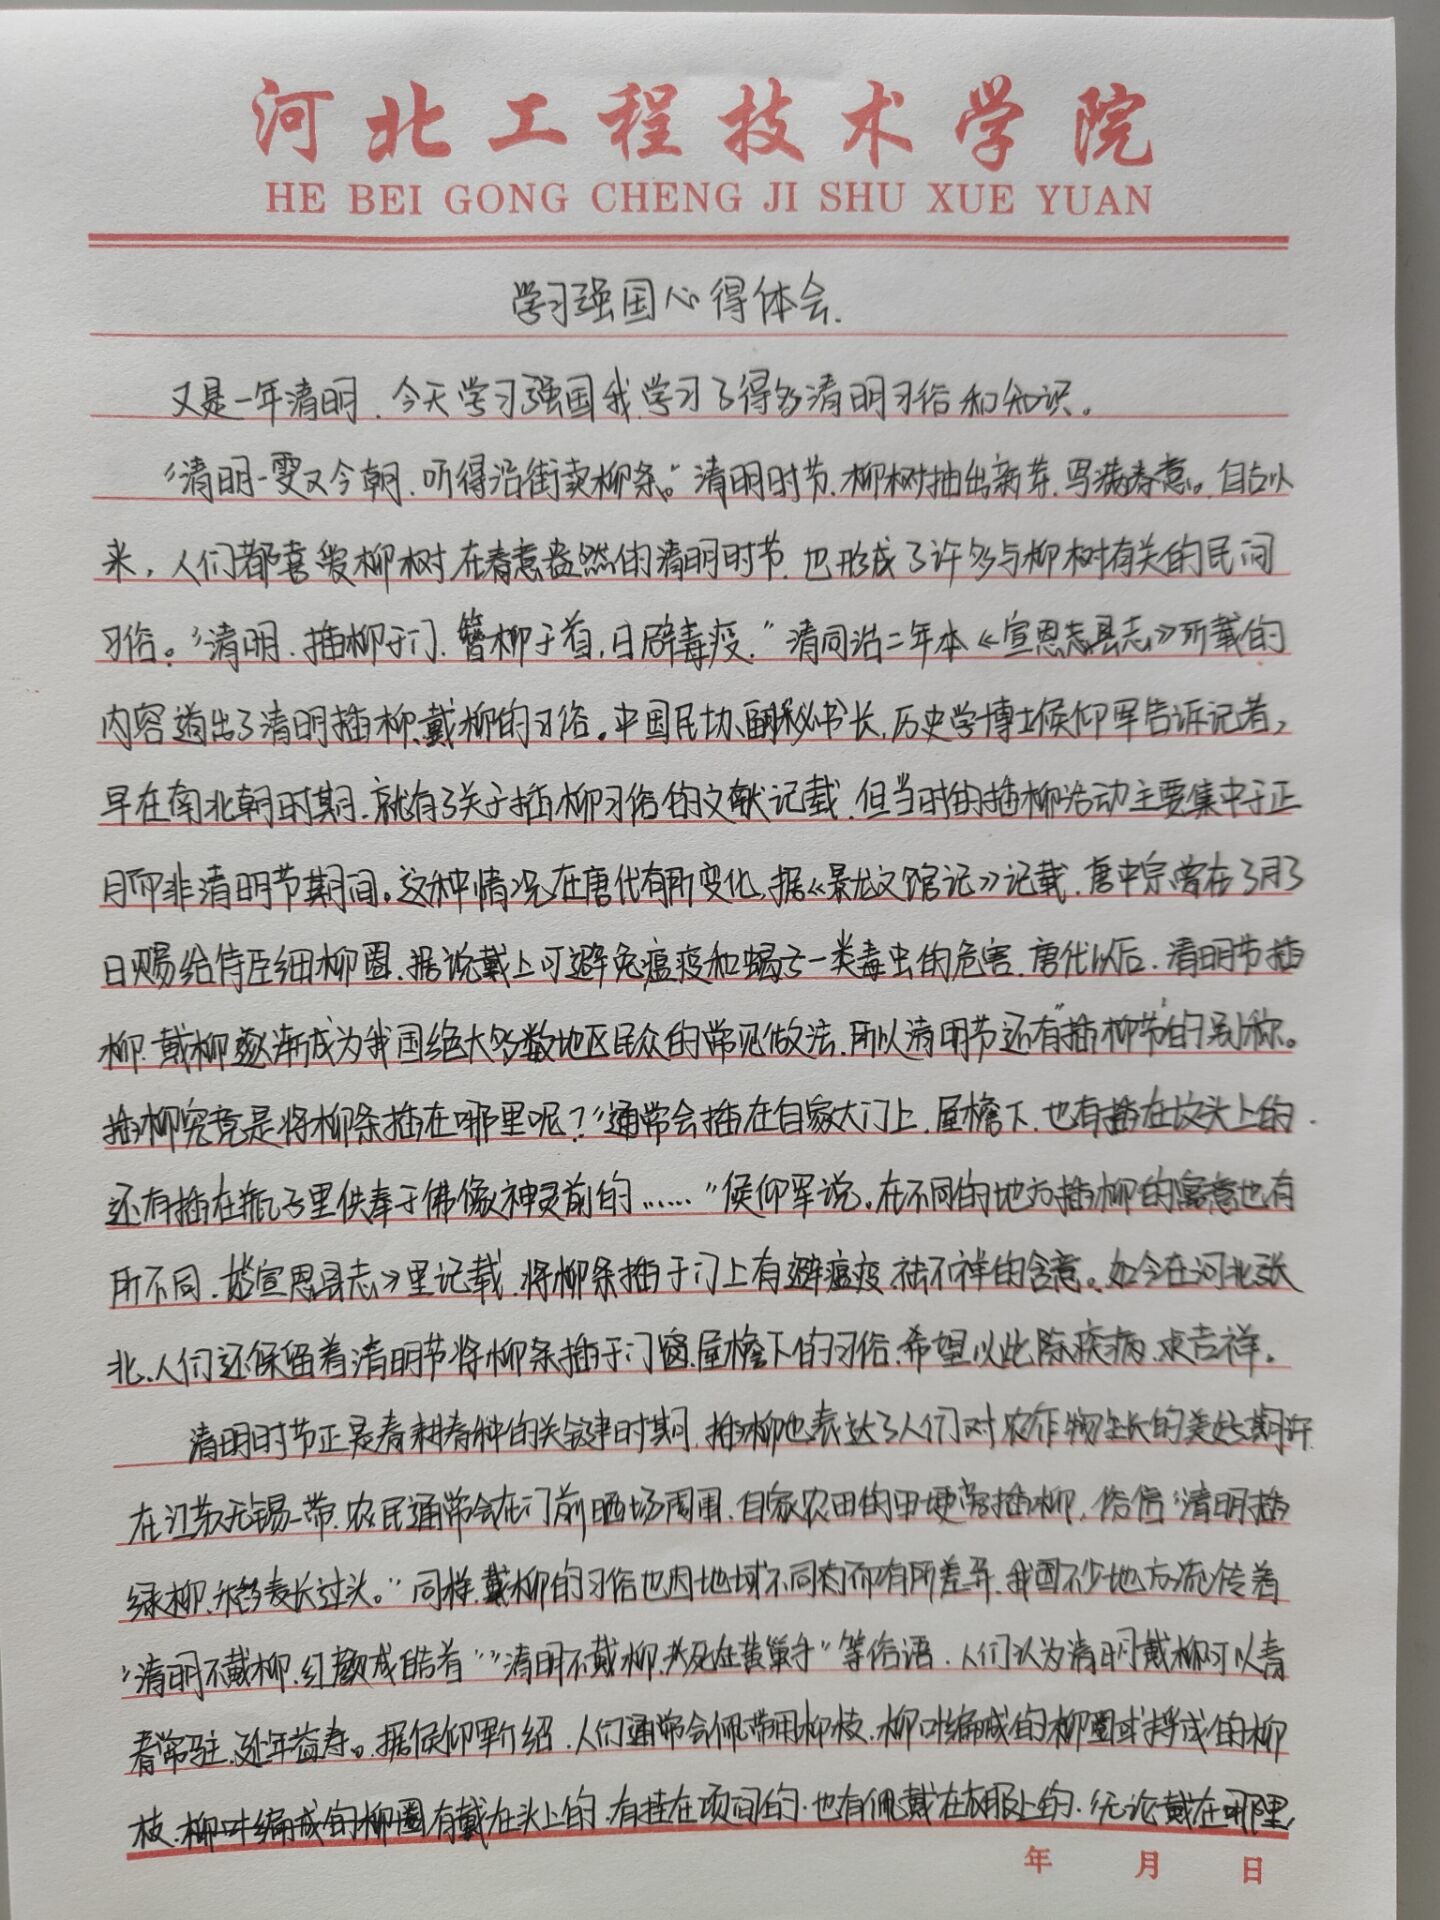 河北工程技术学院
HE BEI GONG CHENG JI SHU XUE YUAN
学习强国心得体会.
又是一年清明.今天学习强国我学习了得多清明习俗和知识.
“清明一霎又今朝.听得沿街卖柳条。”清明时节.柳树抽出新芽.写满春意。自古以
来,人们都喜爱柳树.在春意盎然的清明时节.也形成了许多与柳树有关的民间
习俗。“清明.插柳于门.簪柳于首,日辟毒疫.”清同治二年本《宣恩志县志》所载的
内容道出了清明插柳、戴柳的习俗。中国民协、副秘书长,历史学博士侯仰军告诉记者,
早在南北朝时期.就有了关于插柳习俗的文献记载.但当时的插柳活动主要集中于正
月而非清明节期间。这种情况在唐代有所变化.据《景龙文馆记》记载.唐中宗曾在3月3
日赐给侍臣细柳圈.据说戴上可避免瘟疫和蝎子一类毒虫的危害.唐代以后.清明节插
柳.戴柳逐渐成为我国绝大多数地区民众的常见做法.所以清明节还有“插柳节”的别称。
插柳究竟是将柳条插在哪里呢?“通常会插在自家大门上.屋檐下.也有插在坟头上的.
还有插在瓶子里供奉于佛像神灵前的……”侯仰军说。在不同的地方插柳的寓意也有
所不同.宣恩县志》里记载.将柳条插于门上有避瘟疫.祛不祥的含意。如今在河北张
北.人们还保留着清明节将柳条插于门窗.屋檐下的习俗.希望以此除疾病.求吉祥。
清明时节正是春耕春种的关键时期.插柳也表达了人们对农作物生长的美好期许.
在江苏无锡一带.农民通常会在门前晒场周围.自家农田的田埂旁插柳,俗信“清明插
绿柳.麦长过头。”同样.戴柳的习俗也因地域不同而有所差异.我国不少地方流传着
“清明不戴柳.红颜成皓首”“清明不戴柳.死在黄巢手”等俗语.人们认为清明戴柳可以青
春常驻.延年益寿。据侯仰军介绍.人们通常会佩带用柳枝.柳叶编成的柳圈或择成的柳
枝.柳叶编成的柳圈有戴在头上的.有挂在项间的.也有佩戴在衣服上的.“无论戴在哪里,
年 月 日